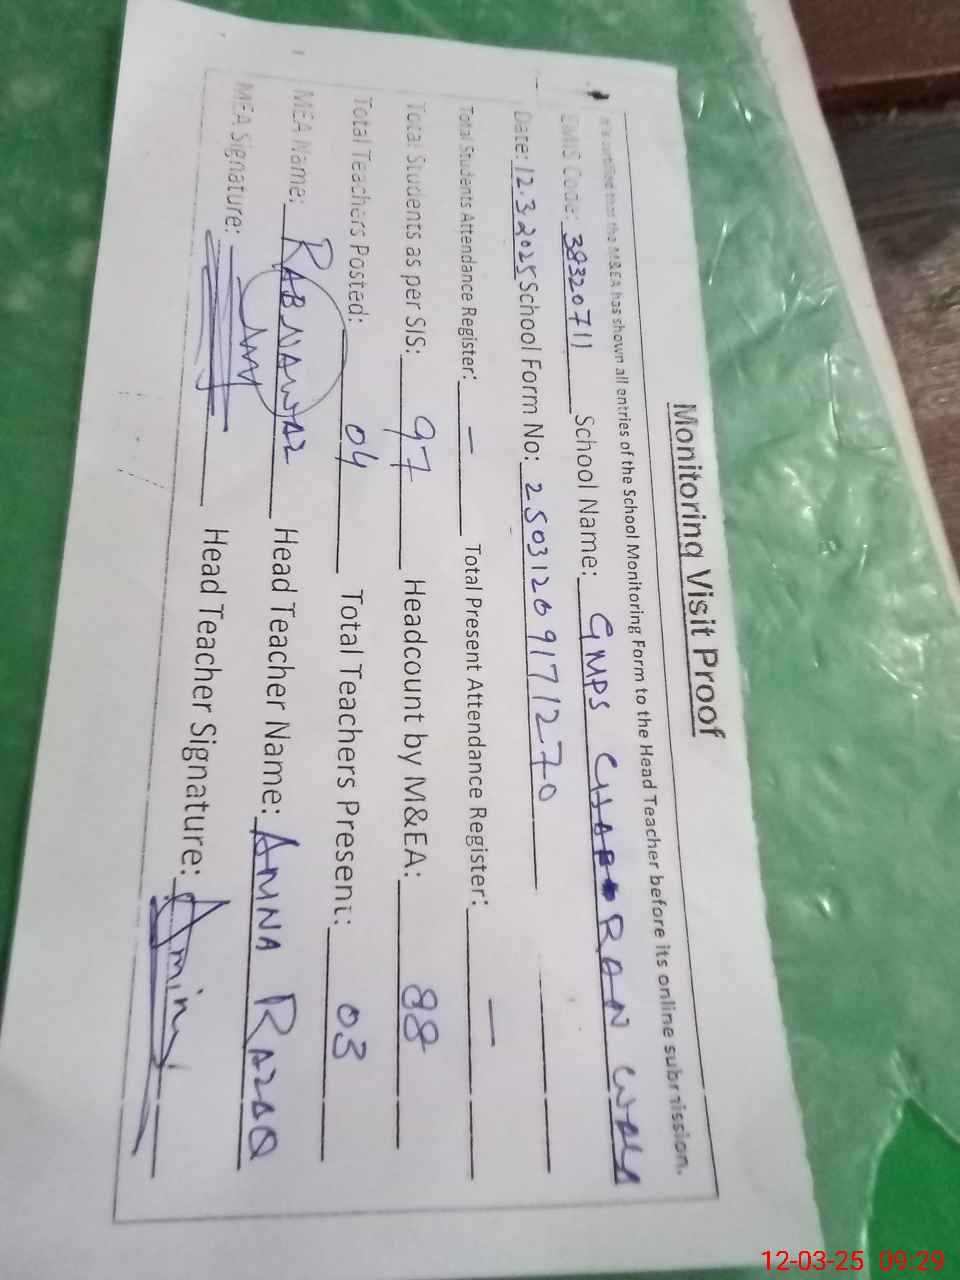 Monitoring Visit Proof
It is certified that the M&EA has shown all entries of the School Monitoring Form to the Head Teacher before its online submission.
EMIS Code: 38320711 School Name: GMPS GHABRAN WALA
Date: 12.3.2025 School Form No: 25031209171270
Total Students Attendance Register: — Total Present Attendance Register: —
Total Students as per SIS: 97 Headcount by M&EA: 88
Total Teachers Posted: 04 Total Teachers Present: 03
MEA Name: RAB NAWAZ Head Teacher Name: AMNA RAZAQ
MEA Signature: Head Teacher Signature:
12-03-25 09:29